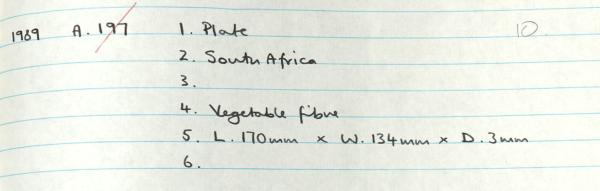 1989 A.197 1. Plate 10.
2. South Africa
3.
4. Vegetable fibre
5. L. 170mm x W. 134mm x D. 3mm
6.